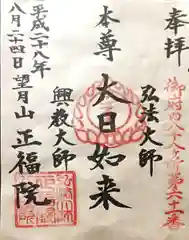 奉拝
御府内八十八ヶ所第六十一番
弘法大師
本尊 大日如来
興教大師
平成二十八年
八月二十四日 望月山 正福院